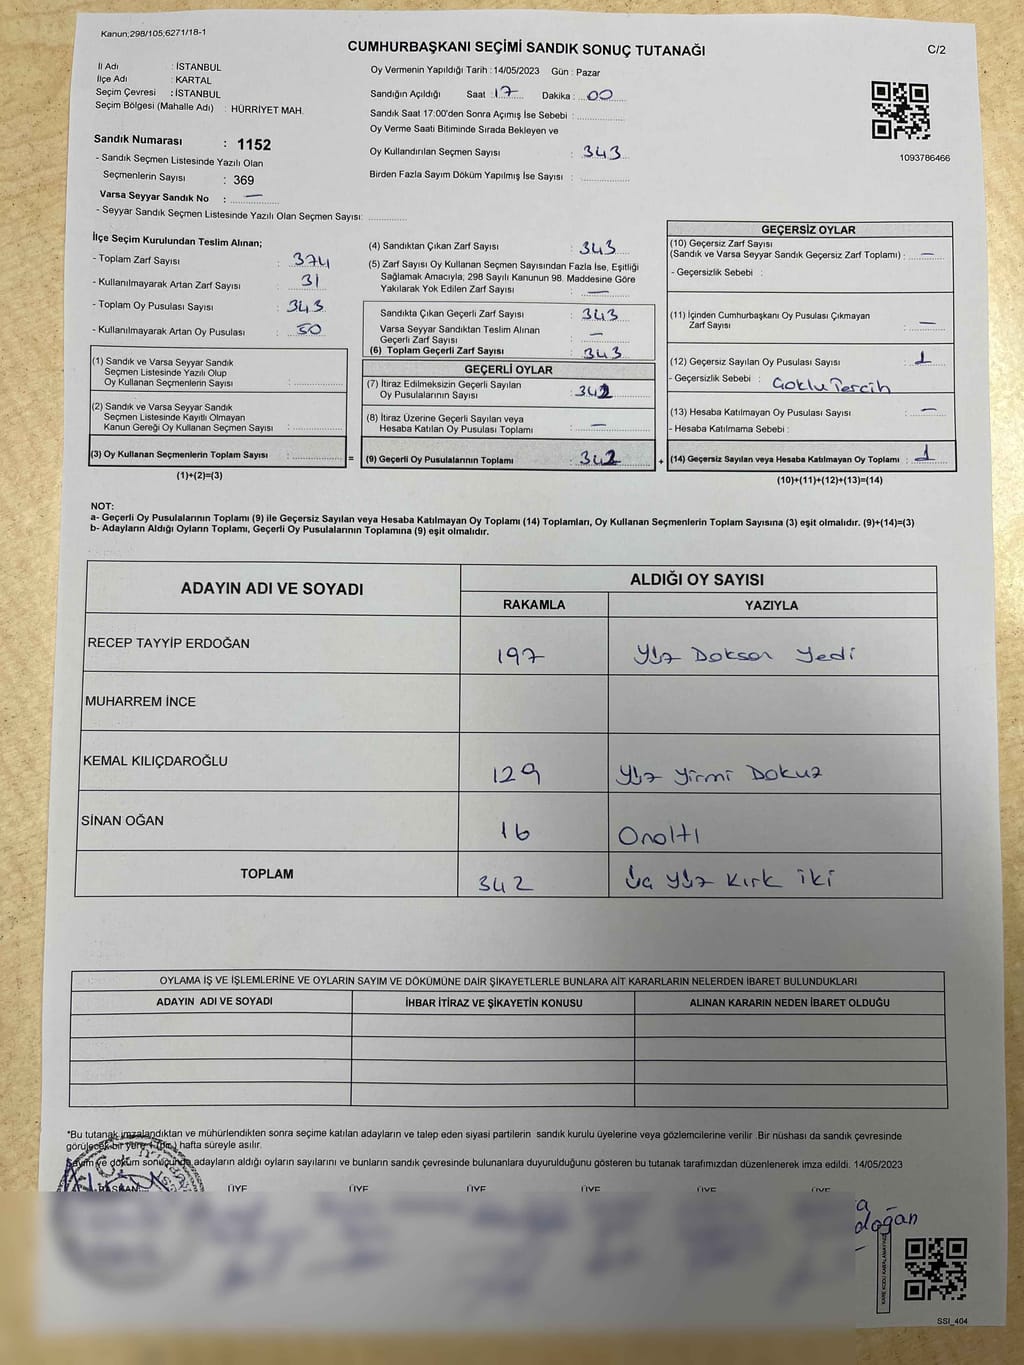 Kanun;298/105;6271/18-1
CUMHURBAŞKANI SEÇİMİ SANDIK SONUÇ TUTANAĞI
C/2
İl Adı : İSTANBUL
İlçe Adı : KARTAL
Seçim Çevresi : İSTANBUL
Seçim Bölgesi (Mahalle Adı) : HÜRRİYET MAH.
Sandık Numarası : 1152
- Sandık Seçmen Listesinde Yazılı Olan
Seçmenlerin Sayısı : 369
Varsa Seyyar Sandık No : —
- Seyyar Sandık Seçmen Listesinde Yazılı Olan Seçmen Sayısı:
Oy Vermenin Yapıldığı Tarih : 14/05/2023 Gün : Pazar
Sandığın Açıldığı Saat : 17 Dakika : 00
Sandık Saat 17:00'den Sonra Açımış İse Sebebi :
Oy Verme Saati Bitiminde Sırada Bekleyen ve
Oy Kullandırılan Seçmen Sayısı : 343
Birden Fazla Sayım Döküm Yapılmış İse Sayısı :
1093786466
İlçe Seçim Kurulundan Teslim Alınan;
- Toplam Zarf Sayısı : 374
- Kullanılmayarak Artan Zarf Sayısı : 31
- Toplam Oy Pusulası Sayısı : 343
- Kullanılmayarak Artan Oy Pusulası : 50
(1) Sandık ve Varsa Seyyar Sandık
Seçmen Listesinde Yazılı Olup
Oy Kullanan Seçmenlerin Sayısı :
(2) Sandık ve Varsa Seyyar Sandık
Seçmen Listesinde Kayıtlı Olmayan
Kanun Gereği Oy Kullanan Seçmen Sayısı :
(3) Oy Kullanan Seçmenlerin Toplam Sayısı :
(1)+(2)=(3)
(4) Sandıktan Çıkan Zarf Sayısı : 343
(5) Zarf Sayısı Oy Kullanan Seçmen Sayısından Fazla İse, Eşitliği
Sağlamak Amacıyla, 298 Sayılı Kanunun 98. Maddesine Göre
Yakılarak Yok Edilen Zarf Sayısı : —
Sandıkta Çıkan Geçerli Zarf Sayısı : 343
Varsa Seyyar Sandıktan Teslim Alınan
Geçerli Zarf Sayısı : —
(6) Toplam Geçerli Zarf Sayısı : 343
GEÇERLİ OYLAR
(7) İtiraz Edilmeksizin Geçerli Sayılan
Oy Pusulalarının Sayısı : 342
(8) İtiraz Üzerine Geçerli Sayılan veya
Hesaba Katılan Oy Pusulası Toplamı : —
= (9) Geçerli Oy Pusulalarının Toplamı : 342
GEÇERSİZ OYLAR
(10) Geçersiz Zarf Sayısı
(Sandık ve Varsa Seyyar Sandık Geçersiz Zarf Toplamı) : —
- Geçersizlik Sebebi :
(11) İçinden Cumhurbaşkanı Oy Pusulası Çıkmayan
Zarf Sayısı : —
(12) Geçersiz Sayılan Oy Pusulası Sayısı : 1
- Geçersizlik Sebebi : Çoklu Tercih
(13) Hesaba Katılmayan Oy Pusulası Sayısı : —
- Hesaba Katılmama Sebebi :
+ (14) Geçersiz Sayılan veya Hesaba Katılmayan Oy Toplamı : 1
(10)+(11)+(12)+(13)=(14)
NOT:
a- Geçerli Oy Pusulalarının Toplamı (9) ile Geçersiz Sayılan veya Hesaba Katılmayan Oy Toplamı (14) Toplamları, Oy Kullanan Seçmenlerin Toplam Sayısına (3) eşit olmalıdır. (9)+(14)=(3)
b- Adayların Aldığı Oyların Toplamı, Geçerli Oy Pusulalarının Toplamına (9) eşit olmalıdır.
ADAYIN ADI VE SOYADI
ALDIĞI OY SAYISI
RAKAMLA YAZIYLA
RECEP TAYYİP ERDOĞAN 197 Yüz Doksan Yedi
MUHARREM İNCE
KEMAL KILIÇDAROĞLU 129 Yüz Yirmi Dokuz
SİNAN OĞAN 16 Onaltı
TOPLAM 342 Üç Yüz Kırk İki
OYLAMA İŞ VE İŞLEMLERİNE VE OYLARIN SAYIM VE DÖKÜMÜNE DAİR ŞİKAYETLERLE BUNLARA AİT KARARLARIN NELERDEN İBARET BULUNDUKLARI
ADAYIN ADI VE SOYADI İHBAR İTİRAZ VE ŞİKAYETİN KONUSU ALINAN KARARIN NEDEN İBARET OLDUĞU
*Bu tutanak imzalandıktan ve mühürlendikten sonra seçime katılan adayların ve talep eden siyasi partilerin sandık kurulu üyelerine veya gözlemcilerine verilir .Bir nüshası da sandık çevresinde
görülecek bir yere 1 (bir) hafta süreyle asılır.
Sayım ve döküm sonucunda adayların aldığı oyların sayılarını ve bunların sandık çevresinde bulunanlara duyurulduğunu gösteren bu tutanak tarafımızdan düzenlenerek imza edildi. 14/05/2023
BAŞKAN ÜYE ÜYE ÜYE ÜYE ÜYE ÜYE
SSI_404